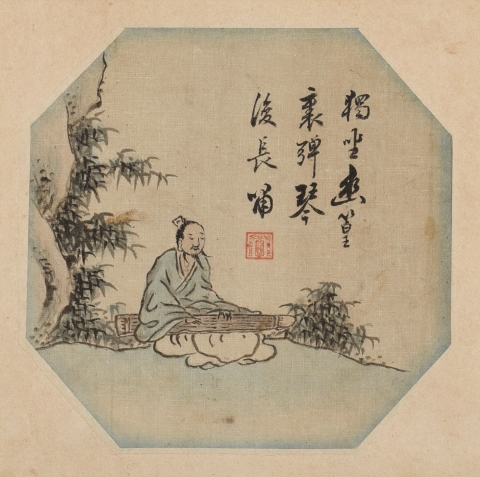 獨坐幽篁
裏彈琴
復長嘯